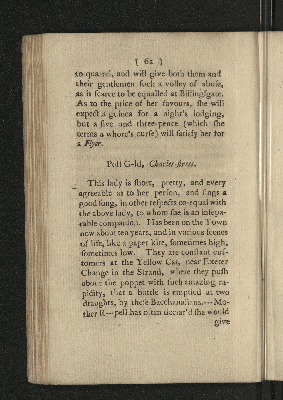 ( 62 )
to quarrel, and will give both them and
their gentlemen such a volley of abuse,
as is scarce to be equalled at Billingsgate.
As to the price of her favours, she will
expect a guinea for a night's lodging,
but a five and three-pence (which she
terms a whore's curse) will satisfy her for
a Flyer.
Poll G-ld, Charles-street.
This lady is short, pretty, and every
agreeable as to her person, and sings a
good song, in other respects co-equal with
the above lady, to whom she is an insepa-
rable companion. Has been on the Town
now about ten years, and in various scenes
of life, like a paper kite, sometimes high,
sometimes low. They are constant cus-
tomers at the Yellow Cat, near Exeter
Change in the Strand, where they push
about the poppet with such amazing ra-
pidity, that a bottle is emptied at two
draughts, by these Bacchanalians.---Mo-
ther R--pell has often declar'd she would
give